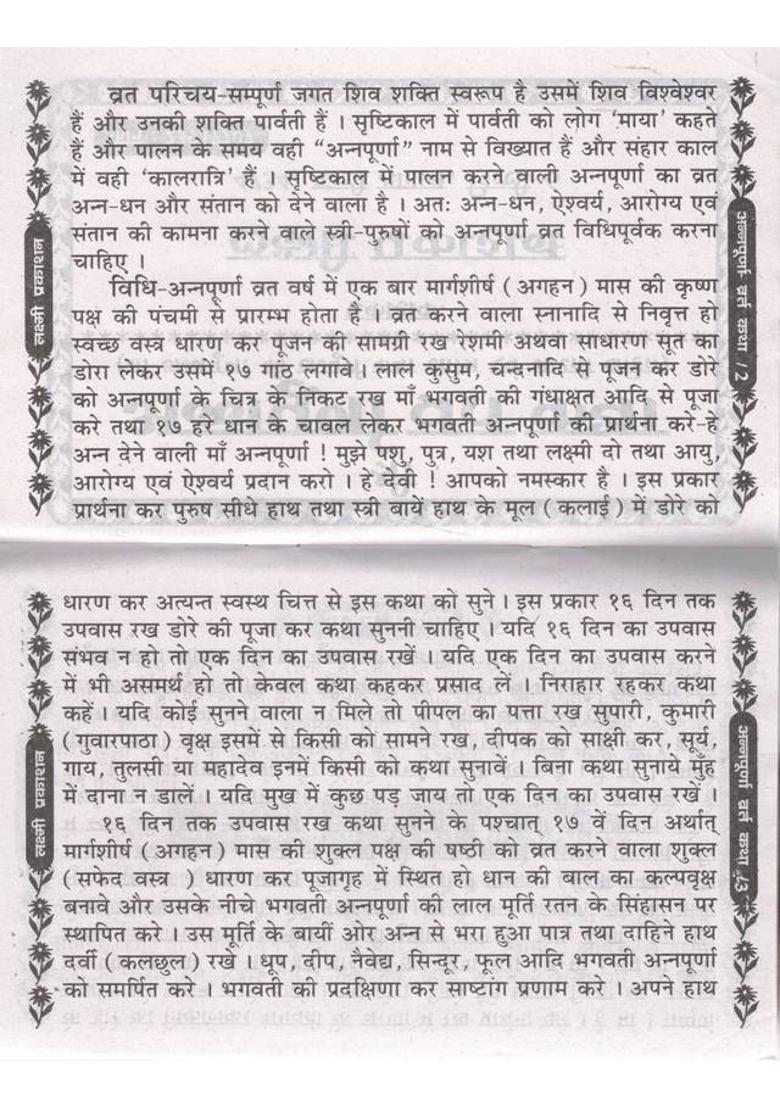 व्रत परिचय-सम्पूर्ण जगत शिव शक्ति स्वरूप है उसमें शिव विश्वेश्वर
हैं और उनकी शक्ति पार्वती हैं । सृष्टिकाल में पार्वती को लोग ‘माया’ कहते
हैं और पालन के समय वही “अन्नपूर्णा” नाम से विख्यात हैं और संहार काल
में वही ‘कालरात्रि’ हैं । सृष्टिकाल में पालन करने वाली अन्नपूर्णा का व्रत
अन्न-धन और संतान को देने वाला है । अतः अन्न-धन, ऐश्वर्य, आरोग्य एवं
संतान की कामना करने वाले स्त्री-पुरुषों को अन्नपूर्णा व्रत विधिपूर्वक करना
चाहिए ।
विधि-अन्नपूर्णा व्रत वर्ष में एक बार मार्गशीर्ष ( अगहन ) मास की कृष्ण
पक्ष की पंचमी से प्रारम्भ होता है । व्रत करने वाला स्नानादि से निवृत्त हो
स्वच्छ वस्त्र धारण कर पूजन की सामग्री रख रेशमी अथवा साधारण सूत का
डोरा लेकर उसमें १७ गांठ लगावे । लाल कुसुम, चन्दनादि से पूजन कर डोरे
को अन्नपूर्णा के चित्र के निकट रख माँ भगवती की गंधाक्षत आदि से पूजा
करे तथा १७ हरे धान के चावल लेकर भगवती अन्नपूर्णा की प्रार्थना करे-हे
अन्न देने वाली माँ अन्नपूर्णा ! मुझे पशु, पुत्र, यश तथा लक्ष्मी दो तथा आयु,
आरोग्य एवं ऐश्वर्य प्रदान करो । हे देवी ! आपको नमस्कार है । इस प्रकार
प्रार्थना कर पुरुष सीधे हाथ तथा स्त्री बायें हाथ के मूल ( कलाई ) में डोरे को
लक्ष्मी प्रकाशन
अन्नपूर्णा व्रत कथा / 2
धारण कर अत्यन्त स्वस्थ चित्त से इस कथा को सुने । इस प्रकार १६ दिन तक
उपवास रख डोरे की पूजा कर कथा सुननी चाहिए । यदि १६ दिन का उपवास
संभव न हो तो एक दिन का उपवास रखें । यदि एक दिन का उपवास करने
में भी असमर्थ हो तो केवल कथा कहकर प्रसाद लें । निराहार रहकर कथा
कहें । यदि कोई सुनने वाला न मिले तो पीपल का पत्ता रख सुपारी, कुमारी
( गुवारपाठा ) वृक्ष इसमें से किसी को सामने रख, दीपक को साक्षी कर, सूर्य,
गाय, तुलसी या महादेव इनमें किसी को कथा सुनावें । बिना कथा सुनाये मुँह
में दाना न डालें । यदि मुख में कुछ पड़ जाय तो एक दिन का उपवास रखें ।
१६ दिन तक उपवास रख कथा सुनने के पश्चात् १७ वें दिन अर्थात्
मार्गशीर्ष ( अगहन ) मास की शुक्ल पक्ष की षष्ठी को व्रत करने वाला शुक्ल
( सफेद वस्त्र ) धारण कर पूजागृह में स्थित हो धान की बाल का कल्पवृक्ष
बनावे और उसके नीचे भगवती अन्नपूर्णा की लाल मूर्ति रतन के सिंहासन पर
स्थापित करे । उस मूर्ति के बायीं ओर अन्न से भरा हुआ पात्र तथा दाहिने हाथ
दर्वी ( कलछुल ) रखे । धूप, दीप, नैवेद्य, सिन्दूर, फूल आदि भगवती अन्नपूर्णा
को समर्पित करे । भगवती की प्रदक्षिणा कर साष्टांग प्रणाम करे । अपने हाथ
लक्ष्मी प्रकाशन
अन्नपूर्णा व्रत कथा / 3